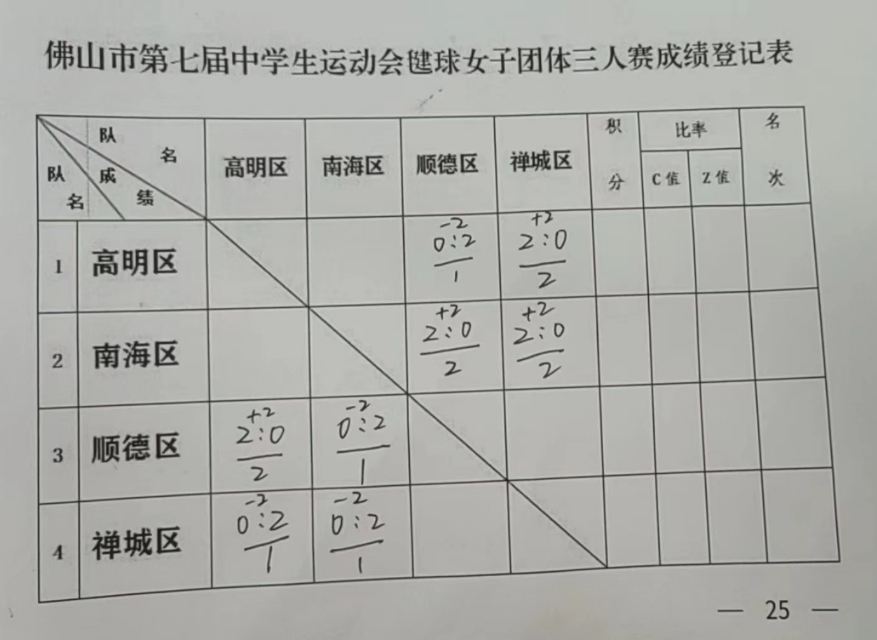 佛山市第七届中学生运动会毽球女子团体三人赛成绩登记表
队名 成绩 队名 高明区 南海区 顺德区 禅城区 积分 比率 名次
C值 Z值
1 高明区 -2 +2
0:2 2:0
1 2
2 南海区 +2 +2
2:0 2:0
2 2
3 顺德区 +2 -2
2:0 0:2
2 1
4 禅城区 -2 -2
0:2 0:2
1 1
— 25 —